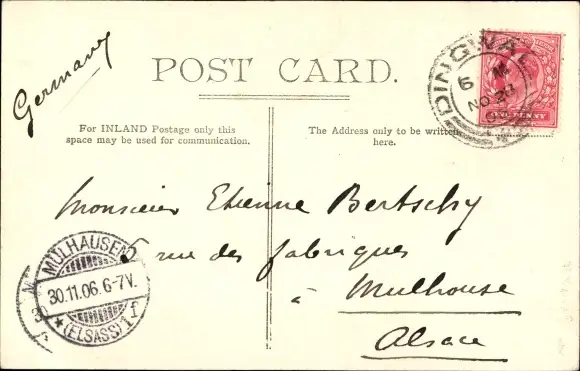 Germany
POST CARD.
For INLAND Postage only this
space may be used for communication.
The Address only to be written
here.
DINGWALL
ONE PENNY
Monsieur Etienne Bertschy
5 rue des fabriques
à Mulhouse
Alsace
MÜLHAUSEN
30.11.06.6-7V.
* (ELSASS) 1 f